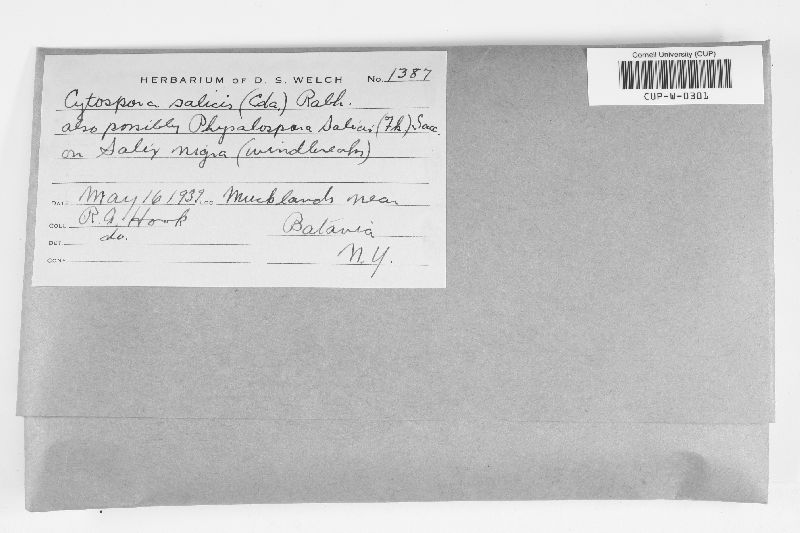 HERBARIUM OF D. S. WELCH No. 1387
Cytospora salicis (Cda) Rabh.
also possibly Physalospora Salicis (Fk) Sacc.
on Salix nigra (windbreaks)
DATE May 16 1939 Mucklands near
COLL. Batavia
DET. do.
COM. N.Y.
Cornell University (CUP)
CUP-W-0301